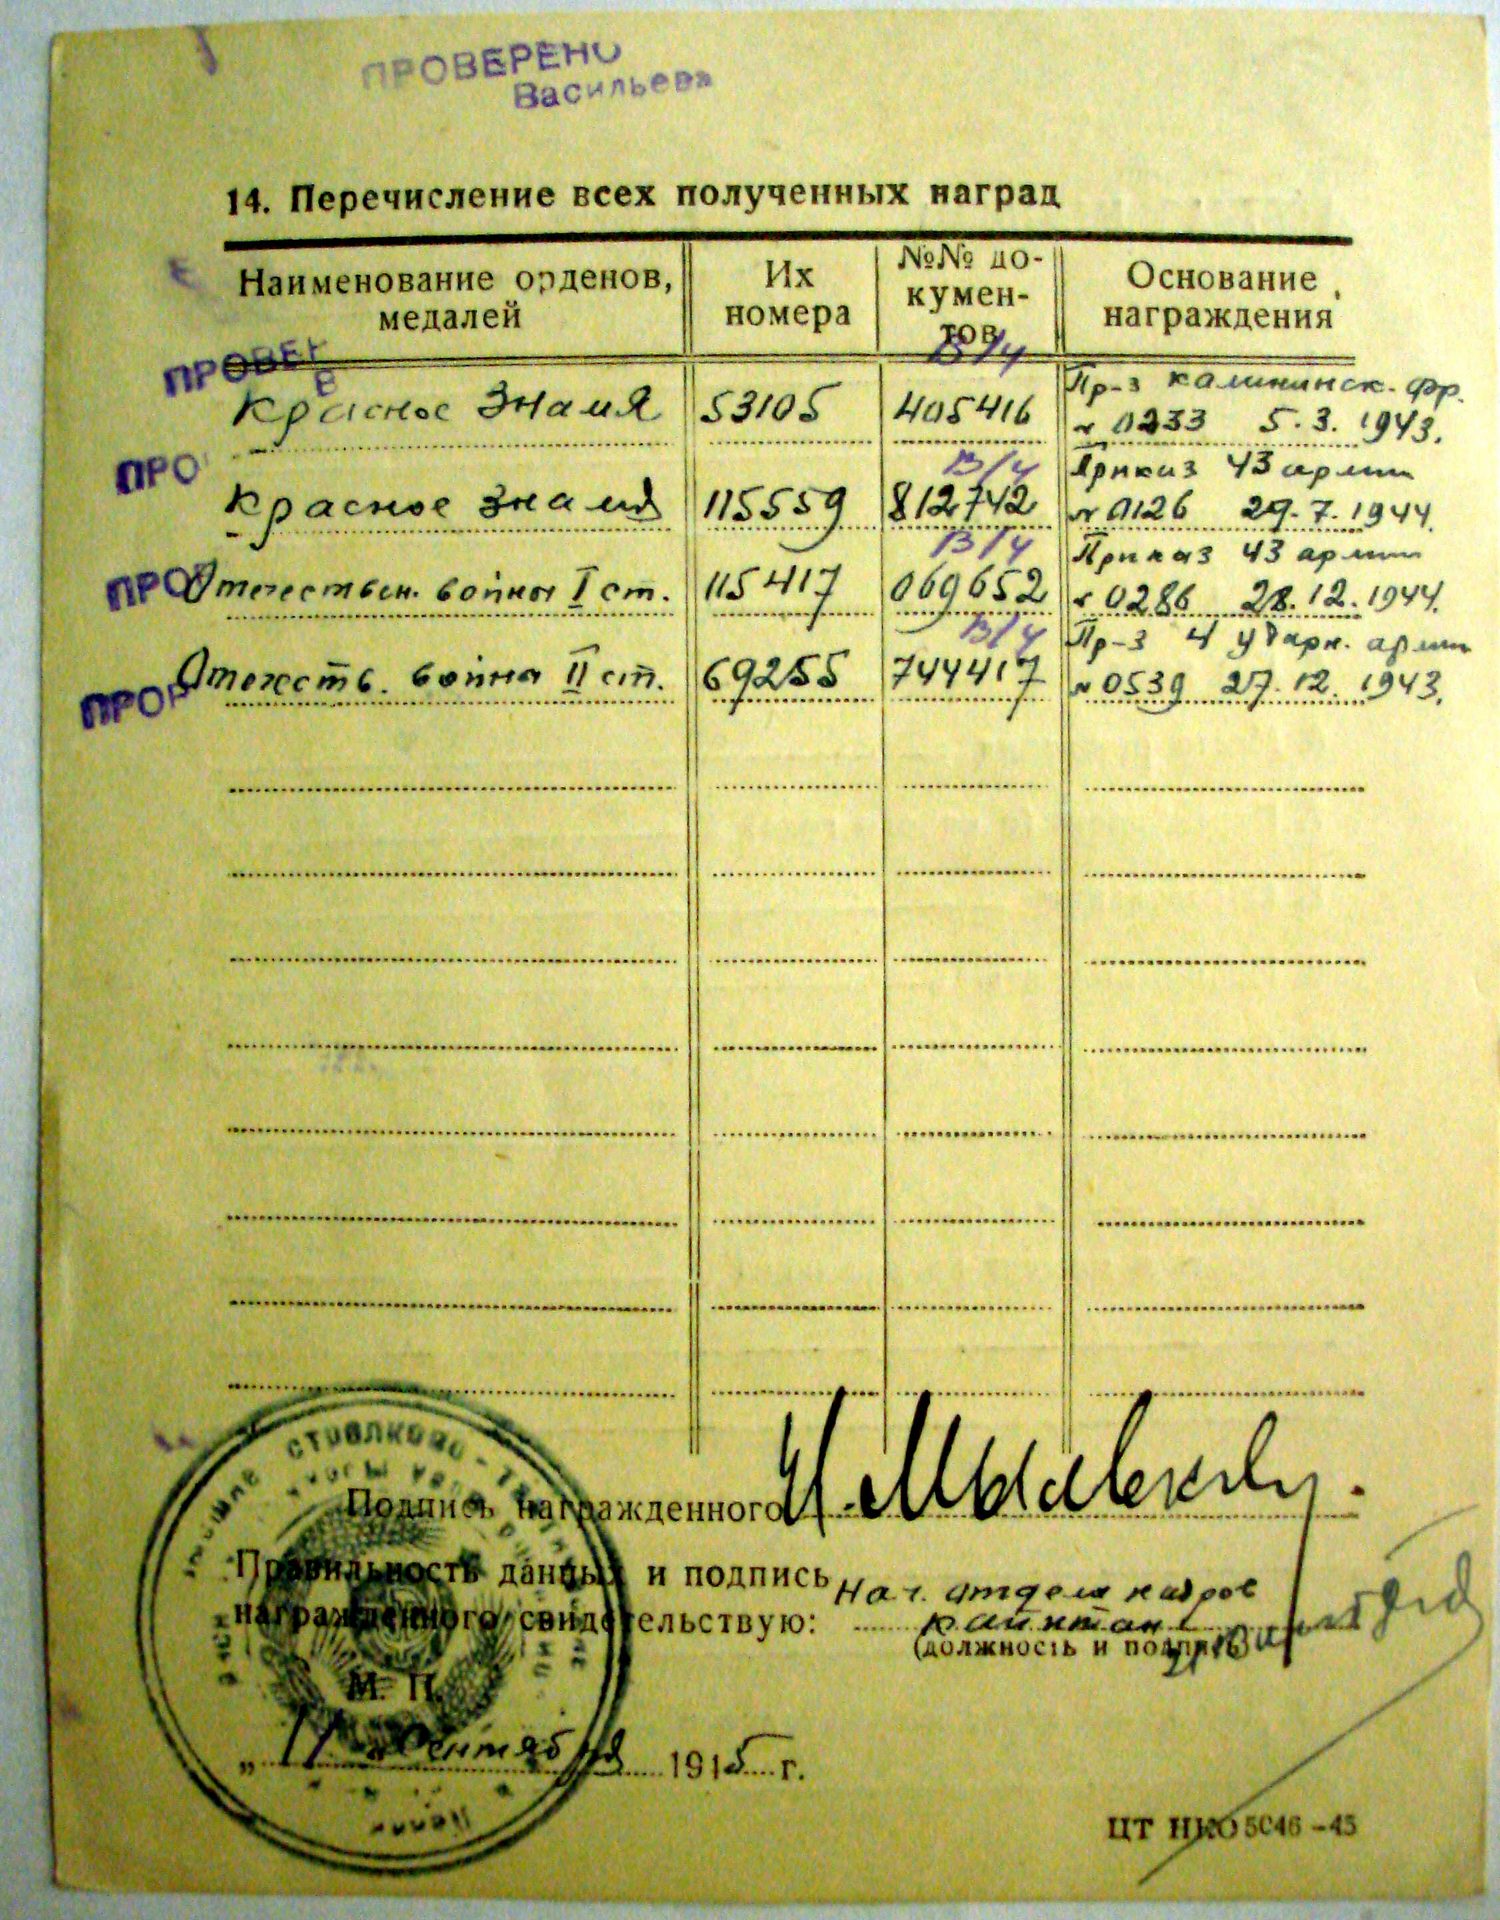 ПРОВЕРЕНО
Васильева
14. Перечисление всех полученных наград
Наименование орденов, медалей
Их номера
№№ до-
кумен-
тов
Основание награждения
ПРОВЕР
В/ч
Пр-з Калининск. фр.
Красное Знамя 53105 405416 № 0233 5.3.1943.
ПРО
В/ч
Приказ 43 армии
Красное Знамя 115559 812742 № 0126 29.7.1944.
В/ч
Приказ 43 армии
ПРО Отечествен. война I ст. 115417 069652 № 0286 28.12.1944.
В/ч
Пр-з 4 ударн. армии
Отечеств. война II ст. 69255 744417 № 0539 27.12.1943.
ПРОВ
стрелково
Подпись награжденного
Правильность данных и подпись
награжденного свидетельствую:
Нач. отдела кадров
капитан
(должность и подпись)
М. П.
„11" сентября 1945 г.
ЦТ НКО 5046-45